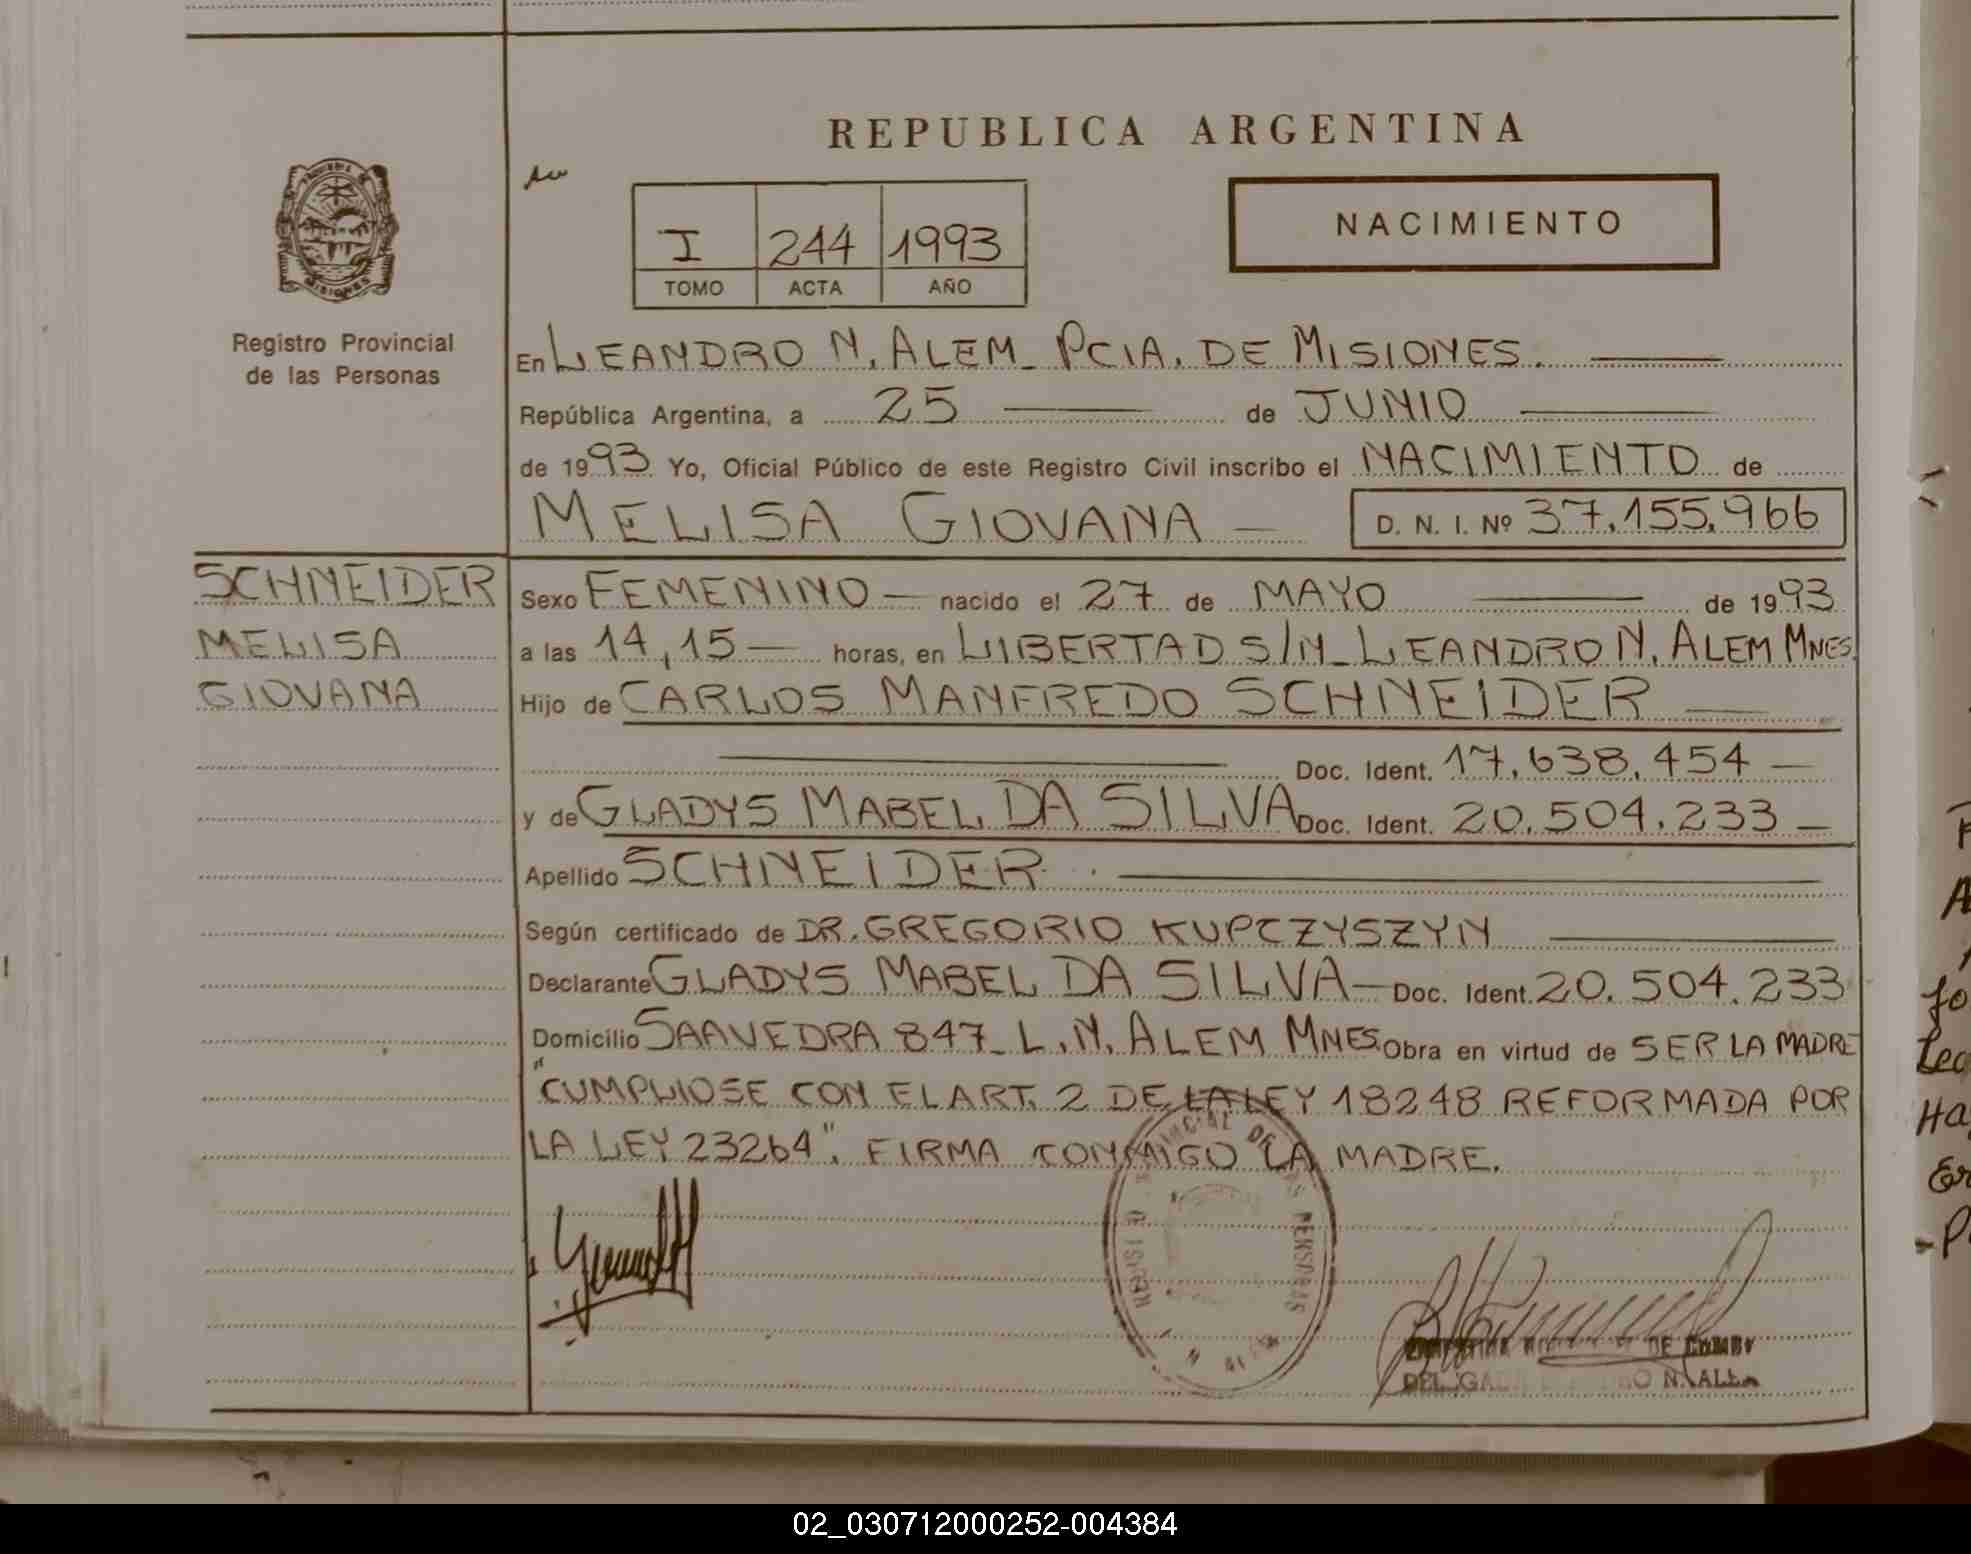 REPUBLICA ARGENTINA
I 244 1993
TOMO ACTA AÑO
NACIMIENTO
MISIONES
Registro Provincial
de las Personas
En LEANDRO N. ALEM_ PCIA. DE MISIONES.
República Argentina, a 25 de JUNIO
de 1993 Yo, Oficial Público de este Registro Civil inscribo el NACIMIENTO de
MELISA GIOVANA — D. N. I. Nº 37.155.966
SCHNEIDER
MELISA
GIOVANA
Sexo FEMENINO — nacido el 27 de MAYO de 1993
a las 14,15 — horas, en LIBERTAD S/N_ LEANDRO N. ALEM MNES.
Hijo de CARLOS MANFREDO SCHNEIDER —
Doc. Ident. 17.638.454 —
y de GLADYS MABEL DA SILVA Doc. Ident. 20.504.233 —
Apellido SCHNEIDER.
Según certificado de DR. GREGORIO KUPCZYSZYN
Declarante GLADYS MABEL DA SILVA — Doc. Ident. 20.504.233
Domicilio SAAVEDRA 847_ L. N. ALEM MNES. Obra en virtud de SER LA MADRE
"CUMPLIOSE CON EL ART. 2 DE LA LEY 18248 REFORMADA POR
LA LEY 23264". FIRMA CONMIGO LA MADRE.
DE COMBY
02_030712000252-004384